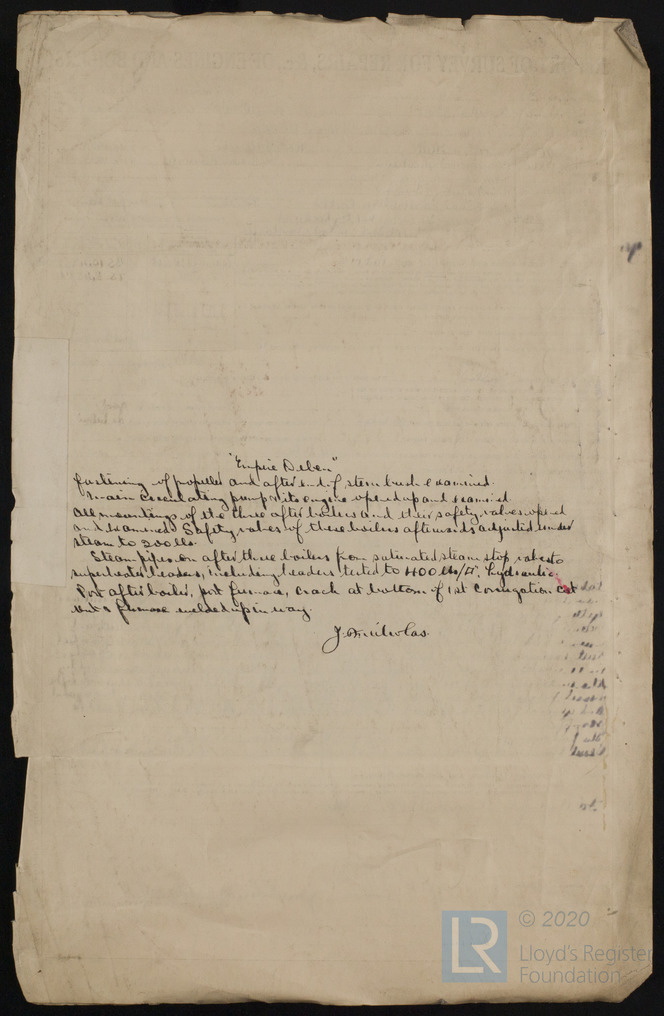 "Empire Deben"
fastening of propeller and after end of stern bush examined.
Main circulating pump & its engine opened up and examined.
All mountings of the three after boilers and their safety valves opened
and examined. Safety valves of these boilers afterwards adjusted under
steam to 200 lbs.
Steam pipes on after three boilers from saturated steam stop valves to
superheater headers, including headers tested to 400 lbs/□" hydraulic.
Port after boiler, port furnace, crack at bottom of 1st corrugation cut
out & furnace welded up in way.
J. Nicholas.
© 2020
LR
Lloyd's Register
Foundation